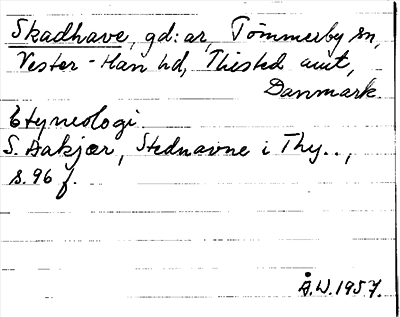 Skadhave, gd:ar, Tömmerby sn,
Vester-Han hd, Thisted amt,
Danmark.
Etymologi
S. Aakjær, Stednavne i Thy..,
s. 96 f.
Å.W. 1957.